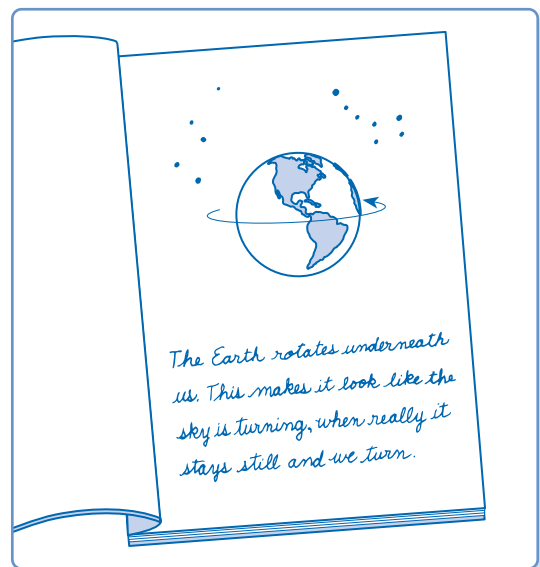 The Earth rotates underneath
us. This makes it look like the
sky is turning, when really it
stays still and we turn.